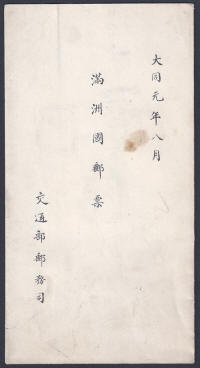 大同元年八月
滿洲國郵票
交通部郵務司